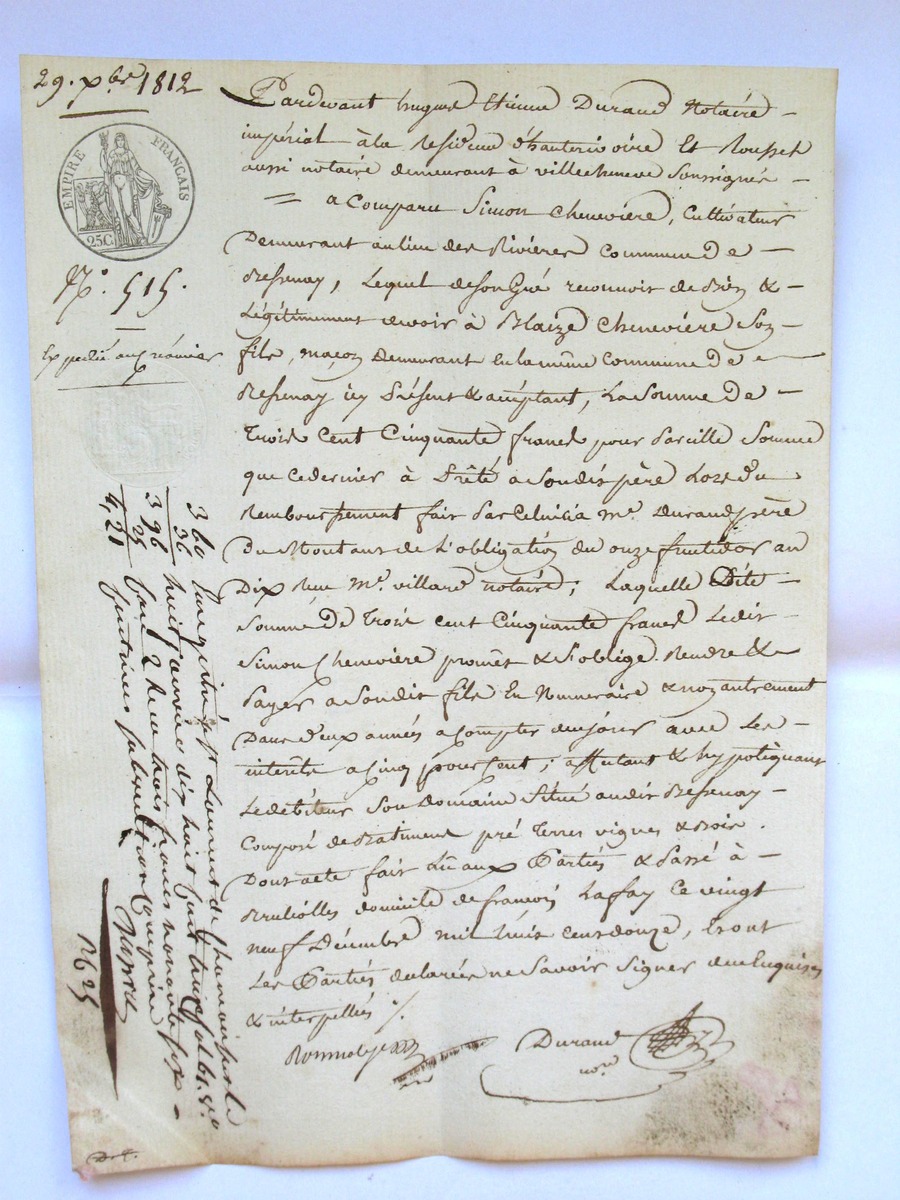 29. Xbre 1812
EMPIRE FRANÇAIS
25C.
N.° 515.
Expédié au créancier
Pardevant hugues Etienne Durand Notaire
impérial à la Residence d'hauterivoire Et Rousset
aussi notaire demeurant à villecheneve Soussignés
= a Comparu Simon Cheneviere, Cultivateur
Demeurant au lieu des Rivières Commune De
Bessenay, Lequel de Son Gré reconnoit de Bien &
Légitimement devoir à Blaize Cheneviere Son
fils, maçon demeurant en la même Commune De
Bessenay icy Présent & acceptant, La Somme De
Trois Cent Cinquante francs pour Pareille Somme
que ce dernier à Prêté a Son dit père Lors Du
Rembourssement fait Par Celui ci a Me. Durand père
Du Montant de L'obligation du onze fructidor an
Dix Reçu Me. villard notaire; Laquelle Dite
Somme De Trois Cent Cinquante francs Ledit
Simon Cheneviere promet & S'oblige Rendre &
Payer a Son dit fils En Numeraire & non autrement
Dans Deux années a Compter de ce jour avec Les
interets a Cinq pour Cent; affectant & hypotéquant
Le débiteur Son Domaine Situé audit Bessenay
Composé de Batiment pré Terres vignes & Bois.
Dont acte fait Lu aux Parties & Passé à
Brullioles domicile de françois Laffay Ce vingt
neuf Décembre mil huit Cent douze, Et ont
Les Parties déclarées ne Savoir Signer de ce Enquises
& interpellées ./.
Durand
nore
3 60 Enregistré à St Laurent de Chamousset le
36 huit janvier dix huit cent treize
3 96 reçu trois francs nonante six
25
4,21
N 625